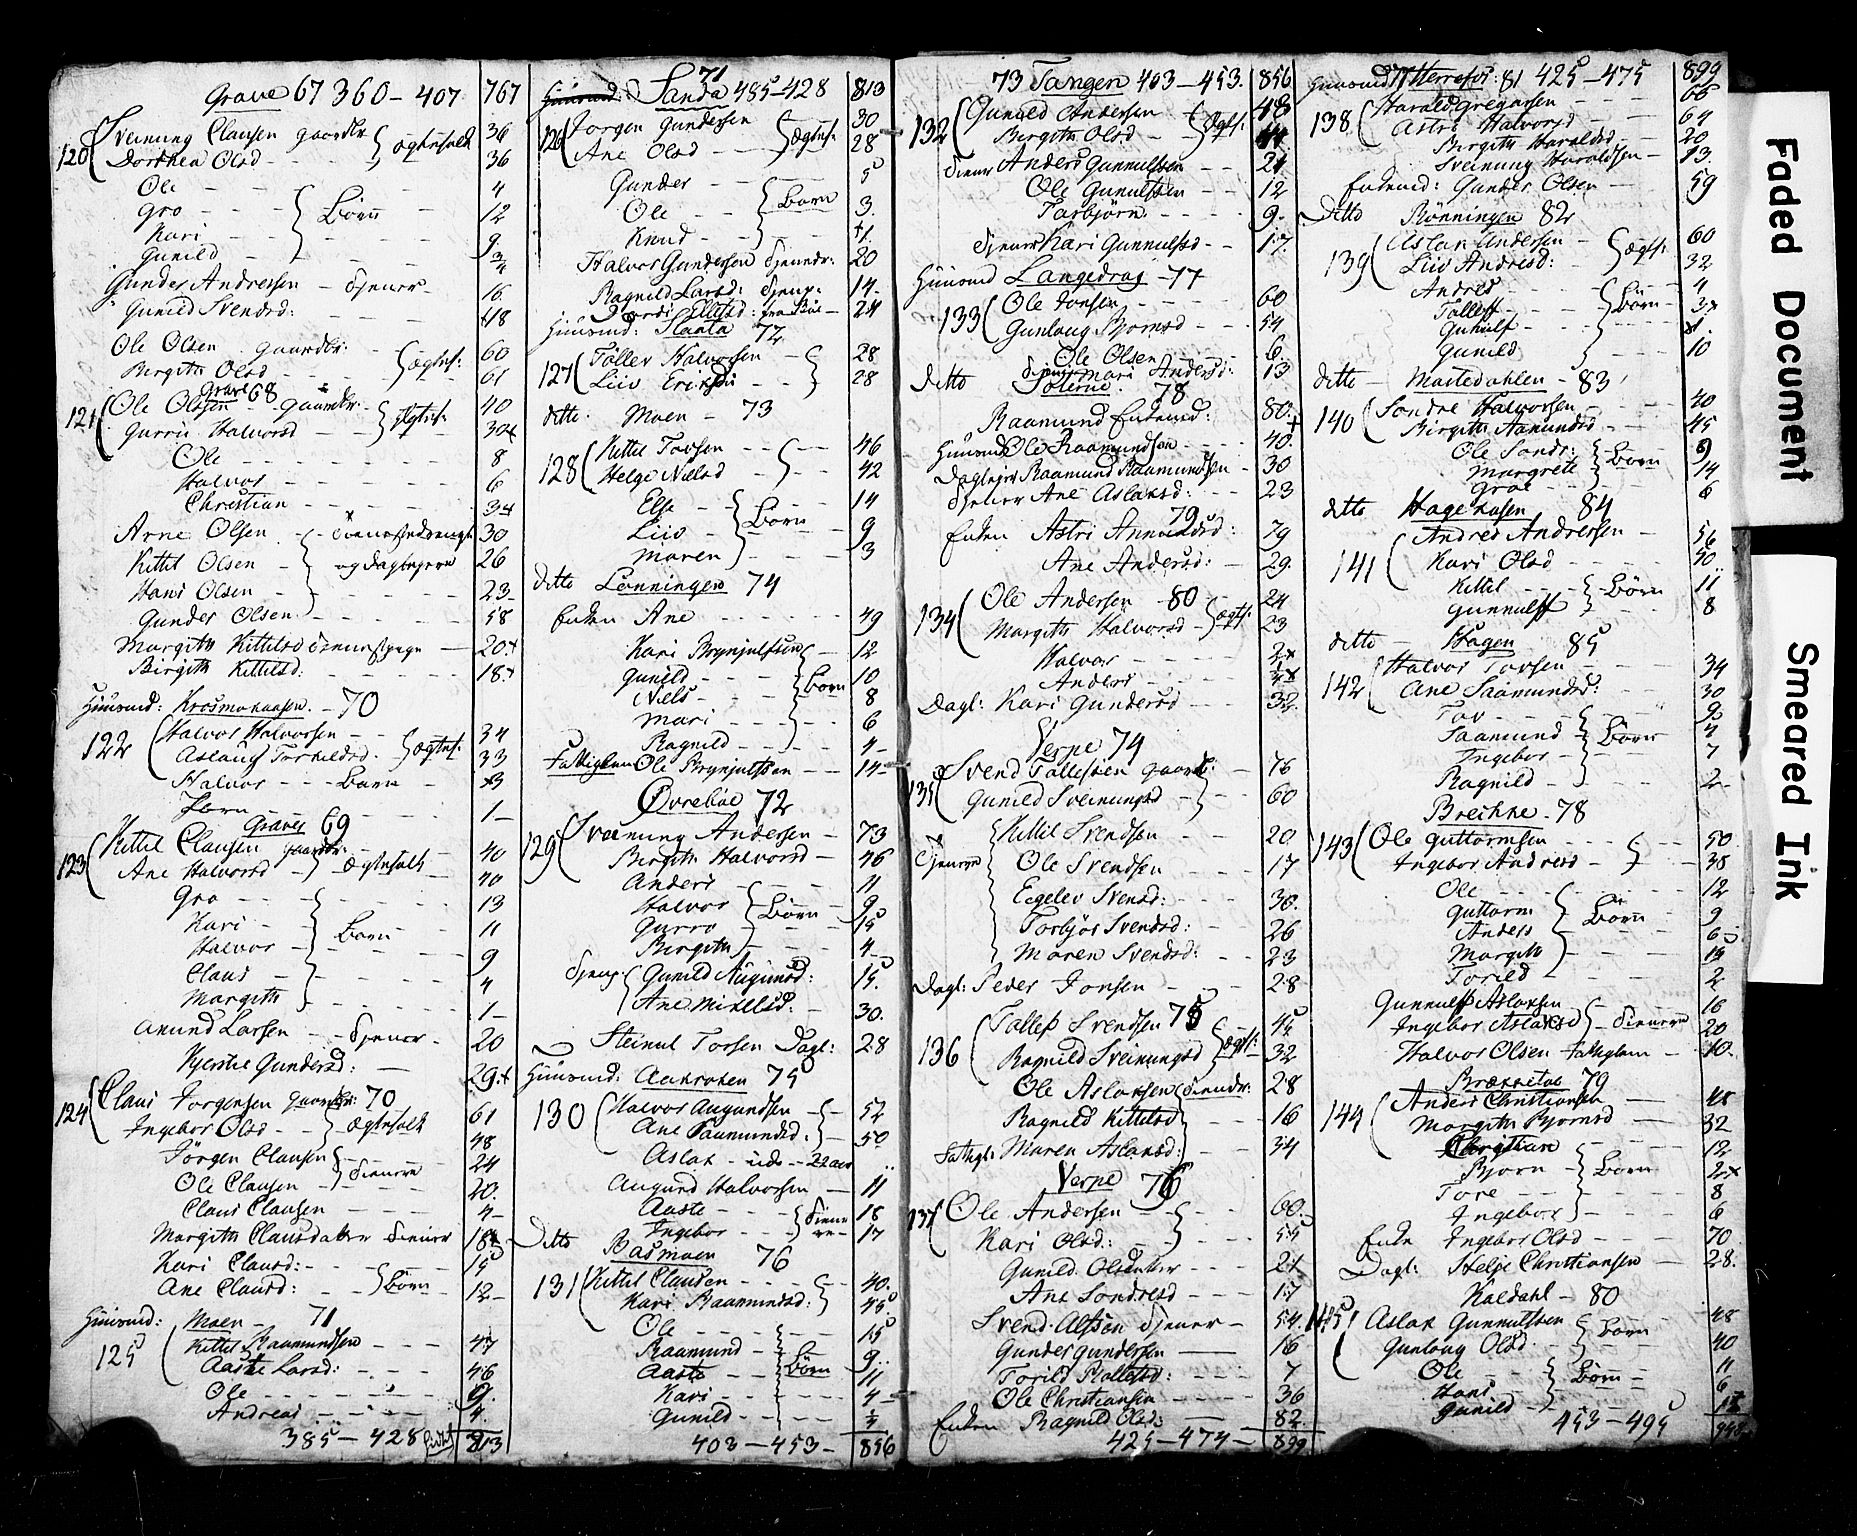 Grave 67 360 - 407 767
120 Sveinung Clausen gaardbr. Ægtefolk 36
Dorthea Olsd 36
Ole 4
Gro Börn 12
Kari 9
Gunild 3/4
Gunder Andersen tjener 16
Gunild Svendsd: 18
Ole Olsen gaardbr: 60
Birgith Olsd Ægtef: 61
Grave 68
121 Ole Olsen gaardbr. 40
Gurru Halvorsd Ægtef: 30
Ole 8
Halvor 6
Christian 3
Arne Olsen 30
Kittil Olsen og daglejere 26
Hans Olsen 23
Gunder Olsen 58
Margith Kittilsd tjenestpige 20
Birgith Kittilsd: 18
Huusmd: 70
122 Halvor Halvorsen 34
Aslaug Ægtef: 33
Halvor Barn 3
1
Grave 69
123 Kittil Clausen gaardbr: 40
Ane Halvorsd Ægtefolk 40
Gro 13
Kari Børn 11
Halvor 9
Claus 4
Margith 1
Amund Larsen Tjener 20
Kjerstie Gundersd: 29
124 Claus Jorgensen gaardbr: 70 61
Ingebor Olsd Ægtefolk 48
Jörgen Clausen 24
Ole Clausen Tienere 20
Claus Clausen 4
Margith Clausdatter Tiener 18
Kari Clausd: 15
Ane Clausd: Börn 12
Huusmd: Moen 71
125 Kittel Raamundsen 47
Aaste Larsd: 46
Ole
Andreas 4
385 - 428 813
Huusmd: Sanda 71 485 - 428 813
126 Jorgen Gundersen 30
Ane Olsd Ægtef: 28
Gunder 5
Ole Børn 3
Knud 1
Halvor Gundersen Tjener: 20
Ragnild Larsd: tjenp: 14
24
Huusmd: Slaata 72
127 Tollev Halvorsen 28
Liv Eriksd 28
ditto Moen 73
128 Kittil Tovsen 46
Helge Nielsd 42
Else 14
Liv Børn 9
Maren 3
ditto Lønningen 74
Enken Ane 49
Kari Brynjulfsen 12
Gunild 10
Niels Børn 8
Mari 6
Ragnild 4
Fattiglem Ole Brynjulfsen 14
Øvrebøe 72
129 Sveinung Andersen 73
Birgith Halvorsd 46
Anders 11
Halvor Börn 9
Gurro 15
Birgith 4
Tjenp Gunild Augunsd: 15
Ane Mikkelsd: 30
Steinul Torsen Dagl: 28
Huusmd: Aakroken 75
130 Halvor Augundsen 52
Ane Saamundsd: 50
Aslak 22 aar
Augund Halvorsen 11
Aaste 18
Ingebor 17
Ditto Basmoen 76
131 Kittel Clausen 40
Kari Raamundsd: 45
Ole 15
Raamund 9
Aaste Börn 11
Kari 4
Gunild
403 - 453 856
73 Tangen 403 - 453 856
132 Gunild Andersen 48
Birgith Olsd Ægtf:
tiener Anders Gunnulfsen 21
Ole Gunulfsen 12
Tarbjörn 9
Tjener Kari Gunnulfsd 17
Huusmd Langedrag 77
133 Ole Jonsen 60
Gunloug Bjornsd 54
Ole Olsen 6
Mari Andersd: 13
ditto Solerne 78
Raamund Enkemd: 80
Huusmd Ole Raamundsen 40
Daglejer Raamund Raamundsen 30
tjener Ane Aslaksd: 23
79
Enken Astri Anmundsd: 79
Ane Andersd: 29
134 Ole Andersen 80 24
Margith Halvorsd Ægtf: 23
Halvor 2
Anders
Dagl: Kari Gundersd 32
Verpe 74
135 Svend Tallefsen gaardb: 76
Gunild Sveinungsd 60
Kittil Svendsen 20
Tjenere Ole Svendsen 17
Egelev Svendsd: 30
Torbjör Svendsd: 26
Maren Svendsd: 23
Dagl: Peder Jonsen 28
136 Tallef Svendsen 75 45
Ragnild Sveinungsd Ægtf: 32
Ole Aslaksen 28
Ragnild Kittelsd 16
Fattigl: Maren Aslaksd: 34
Verpe 76
137 Ole Andersen 60
Kari Olsd: 55
Gunild Olsdatter 21
Ane Sondresd 17
Svend Alfsen tjener 54
Gunder Gundersen 16
Torild Rollefsd: 7
Ole Christiansen 36
Enken Ragnild Olsd: 82
425 - 474 899
Huusmd Herrefos: 81 425 - 475 899
138 Harald Gregarsen 66
Astri Halvorsd 64
Birgith Haraldsd 20
Sveinung Haraldsen 13
Enkemd: Gunder Olsen 59
Ditto Rønningen 82
139 Aslak Andersen 60
Liv Andresd: Ægtf: 32
Andres 4
Tolleff Børn
Gunulf
Gunild 10
ditto Mastedahlen 83
140 Sondre Halvorsen 40
Birgith Aamundsd 45
Ole Sondr: 9
Margrete Børn 14
Groe 6
ditto Hagekasen 84
141 Andres Andressen 56
Kari Olsd 40
Kittil Börn 11
Gunnulff 8
ditto Hagen 85
142 Halvor Tovsen 34
Ane Saamundsd: 30
Tov 9
Saamund Børn
Ingebor 7
Ragnild 2
Breckke 78
143 Ole Guttormsen 50
Ingebor Andresd 38
Ole 12
Guttorm Børn 9
Anders 6
Margith 15
Torild 2
Gunnulff Aslaksen 16
Ingebor Aslaksd Tienere 20
Halvor Olsen Fattiglem 10
79
144 Anders Christiansen 48
Margith Bjornsd 32
Christian 12
Bjorn Børn 2
Tore 8
Ingebor 6
Enke Ingebor Olsd 70
Dagl: Helje Christiansen 28
Kaldahl 80
145 Aslak Gunnulfsen 48
Gunloug Olsd 40
Ole 11
Hans Börn 6
Gunild
453 - 495
Faded Document
Smeared Ink